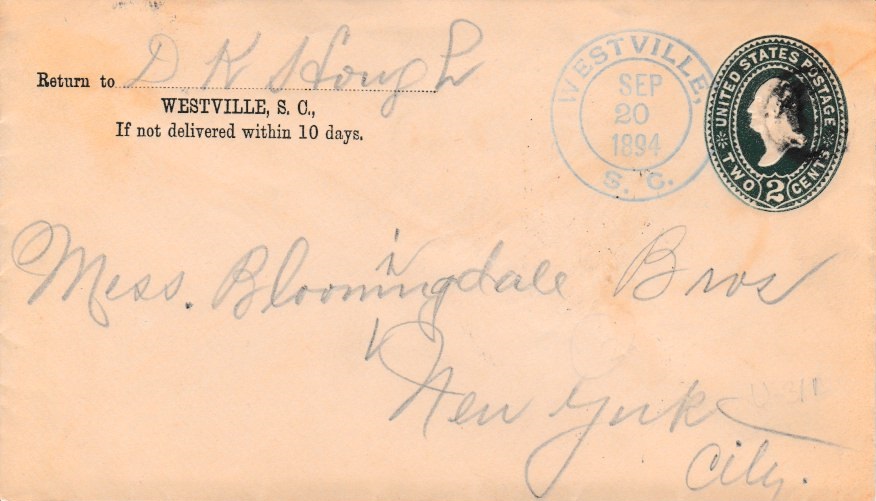 Return to D K Hough
WESTVILLE, S. C.,
If not delivered within 10 days.
WESTVILLE,
SEP
20
1894
S. C.
UNITED STATES POSTAGE
TWO 2 CENTS
Mess. Bloomingdale Bros
New York
City.